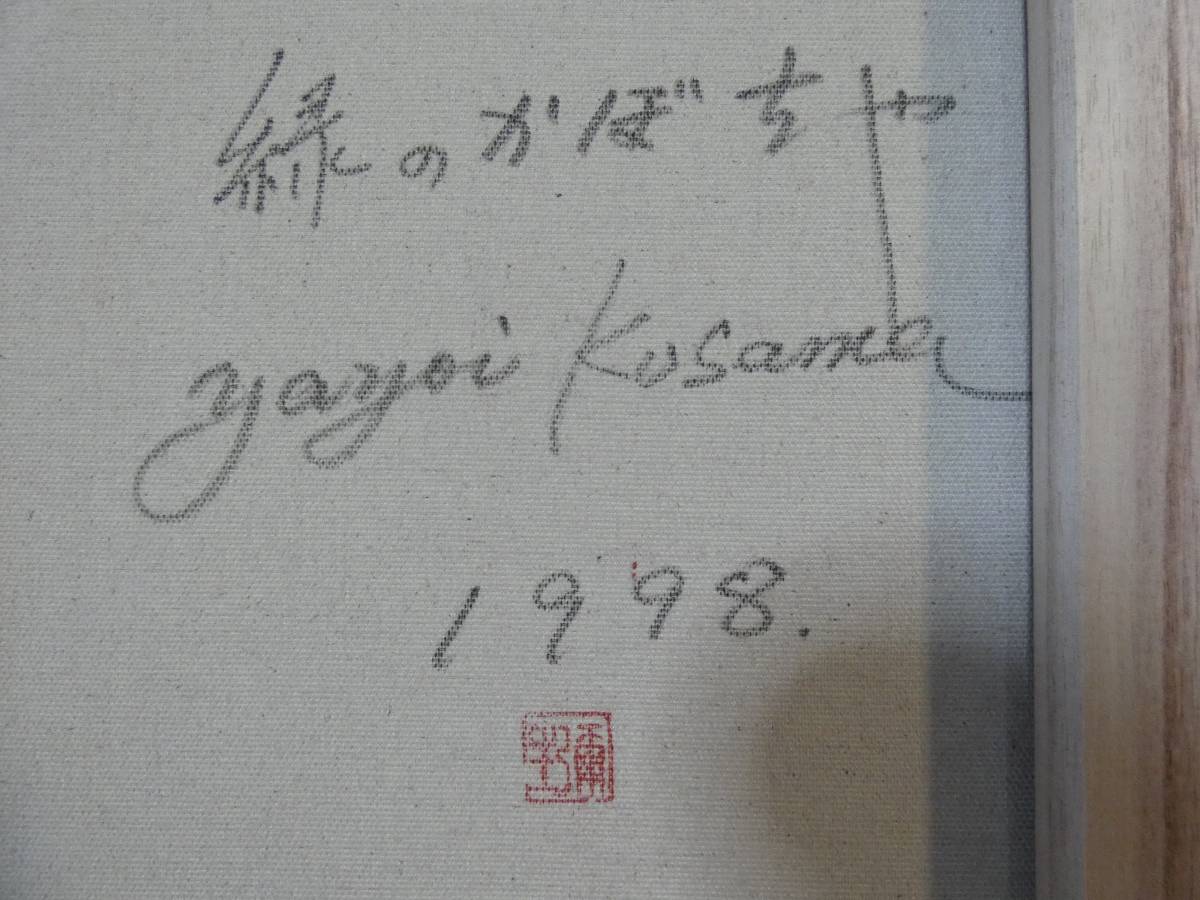 緑のかぼちゃ
yayoi Kusama
1998.